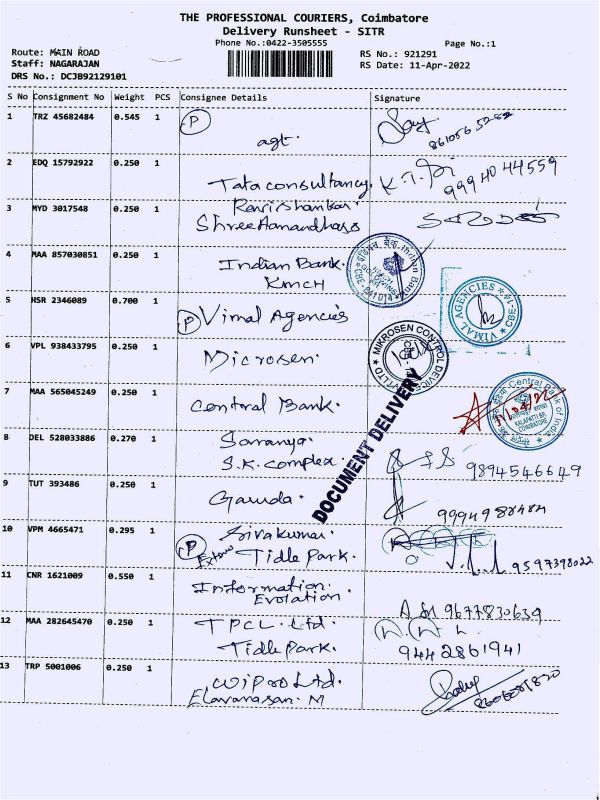 THE PROFESSIONAL COURIERS, Coimbatore
Delivery Runsheet - SITR
Phone No.:0422-3505555
Page No.:1
Route: MAIN ROAD
Staff: NAGARAJAN
DRS No.: DCJB92129101
RS No.: 921291
RS Date: 11-Apr-2022
S No Consignment No Weight PCS Consignee Details Signature
1 TRZ 45682484 0.545 1 P
agt.
2 EDQ 15792922 0.250 1
Tata consultancy. 9994044559
3 MYD 3017548 0.250 1 Ravirshankar.
4 MAA 857030851 0.250 1 Indian Bank.
KMCH
5 HSR 2346089 0.700 1
P Vimal Agencies
VIMAL AGENCIES
6 VPL 938433795 0.250 1
Microsen.
MIKROSEN CONTROL DEVICES
7 MAA 565045249 0.250 1
Central Bank.
Central Bank of India
DOCUMENT DELIVERY
8 DEL 528033886 0.270 1 Saranya.
S.K. complex. 9894546649
9 TUT 393486 0.250 1
Garuda.
10 VPM 4665471 0.295 1 Sivakumar.
P Tidle Park. 9597398022
11 CNR 1621009 0.550 1 Information.
Evolation. 9677830639
12 MAA 282645470 0.250 1 TPCL. Ltd.
Tidle Park. 9442861941
13 TRP 5001006 0.250 1 wipro Ltd.
Elavarasan. M